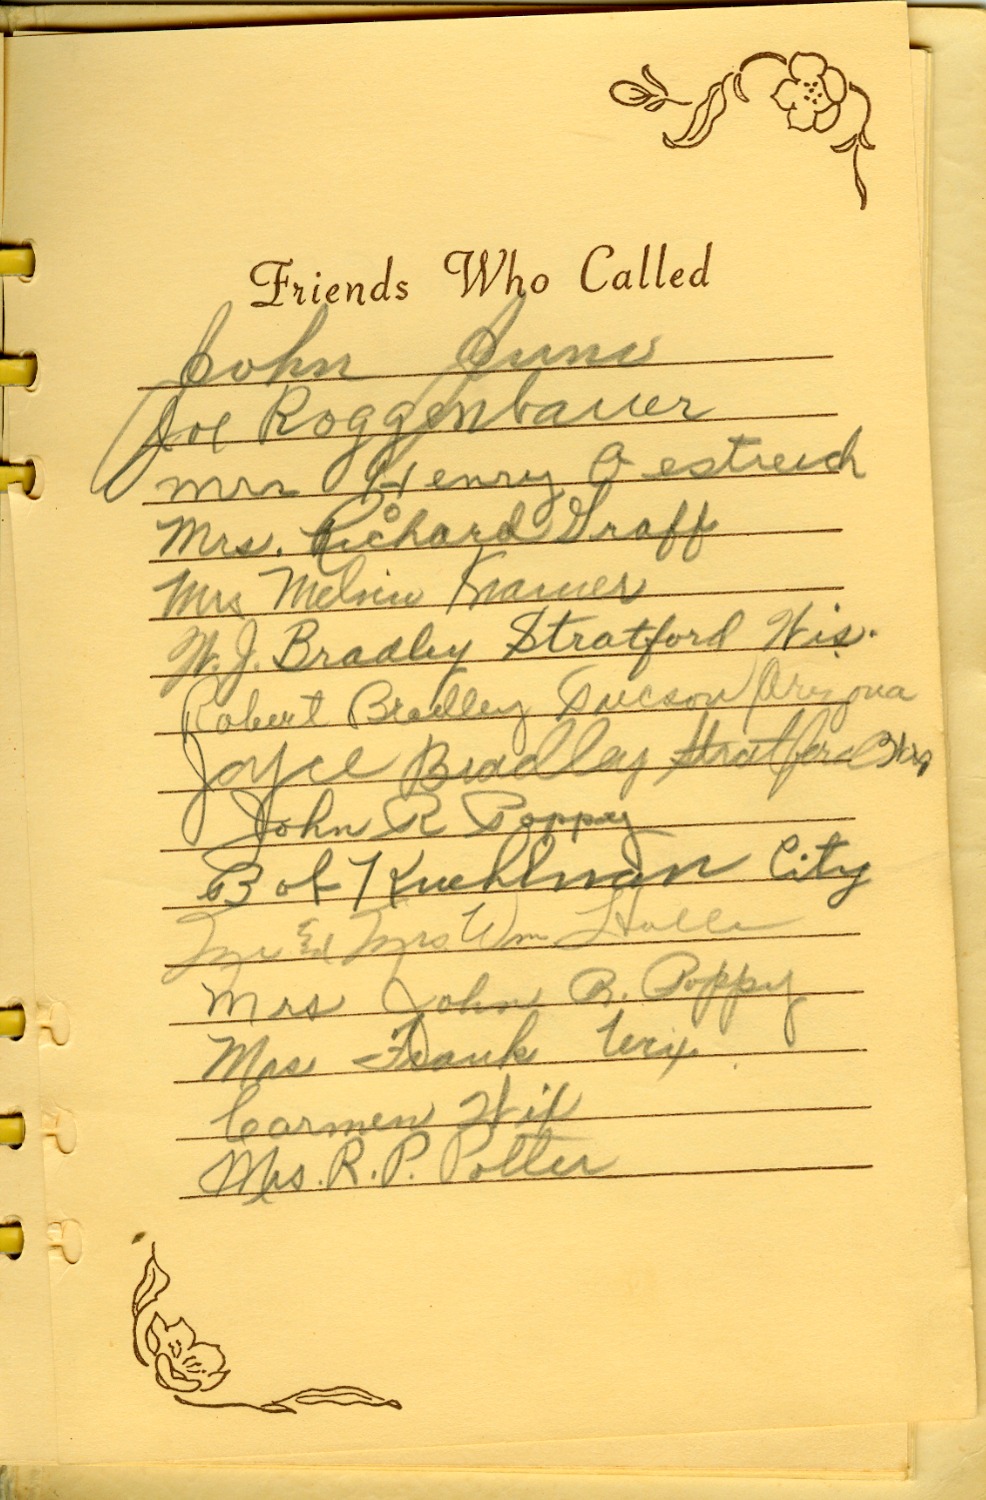 Friends Who Called
John
Joe Roggenbauer
Mrs Henry Oestreich
Mrs. Richard Graff
Mrs Melvin Kramer
W. J. Bradley Stratford Wis.
Robert Bradley Tucson Arizona
Joyce Bradley Stratford Wis
John R Poppy
Bob Kuehlman City
Mr & Mrs Wm Halle
Mrs John R. Poppy
Mrs Frank Wix
Carmen Wix
Mrs. R. P. Potter